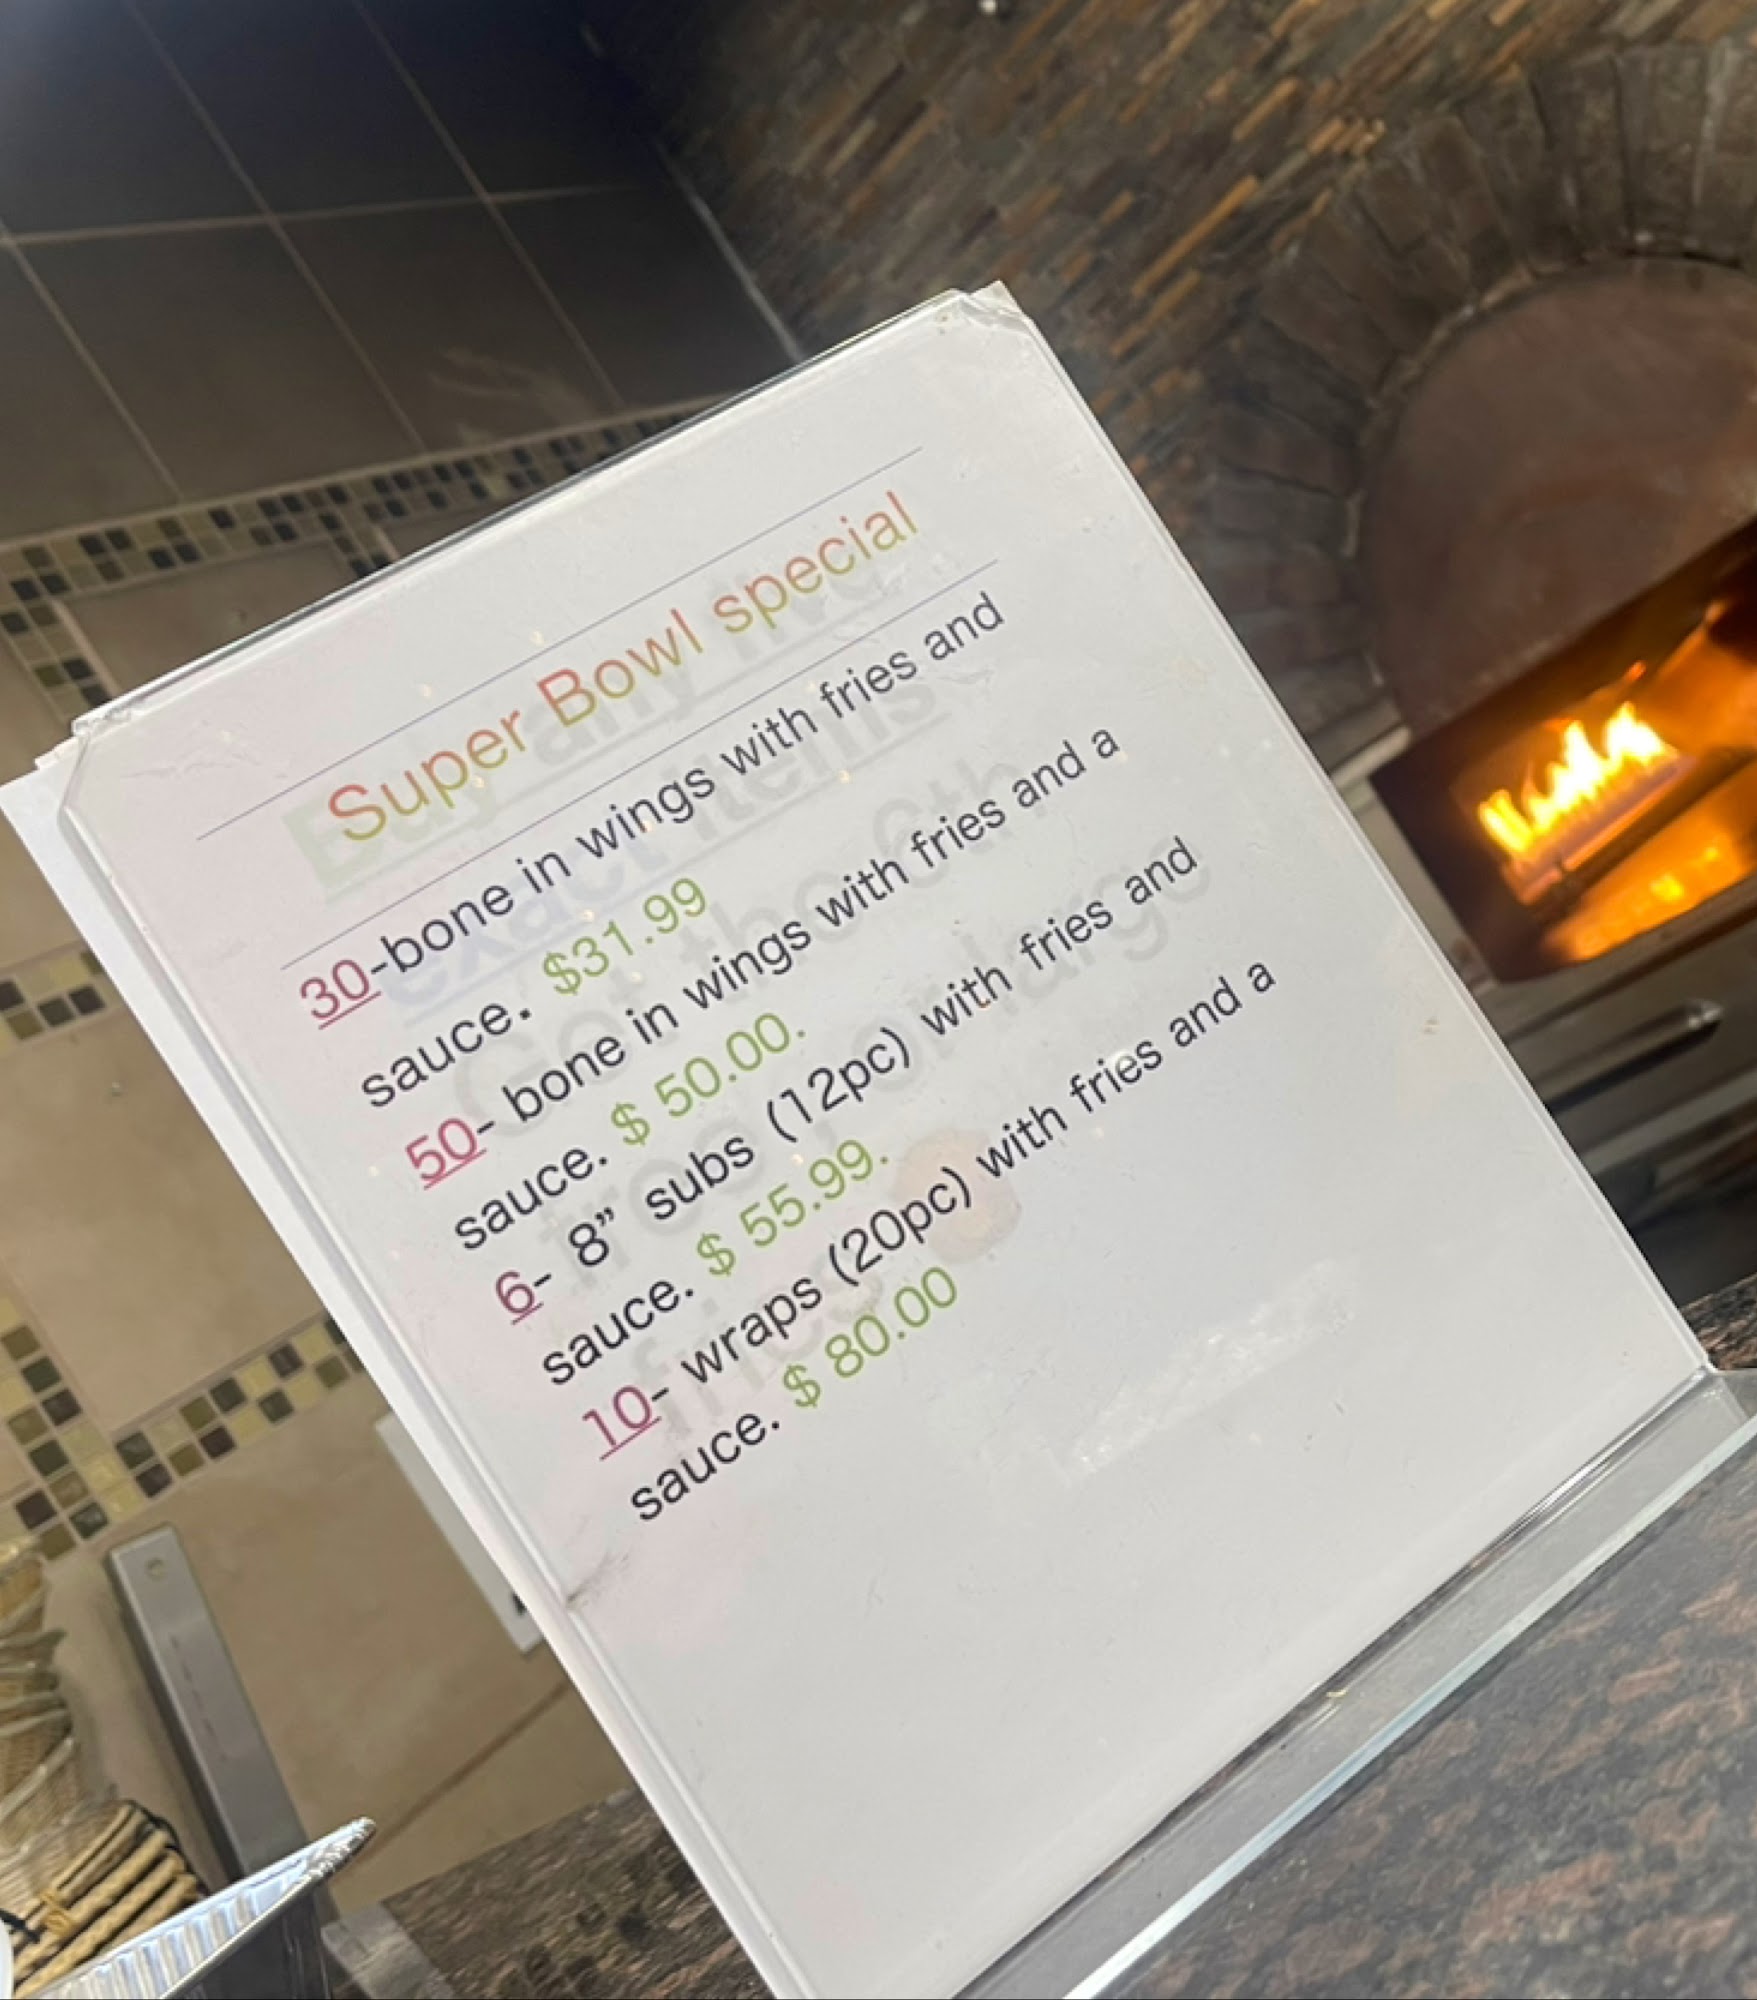 Super Bowl special
30-bone in wings with fries and
sauce. $31.99
50- bone in wings with fries and a
sauce. $ 50.00.
6- 8” subs (12pc) with fries and
sauce. $ 55.99.
10- wraps (20pc) with fries and a
sauce. $ 80.00